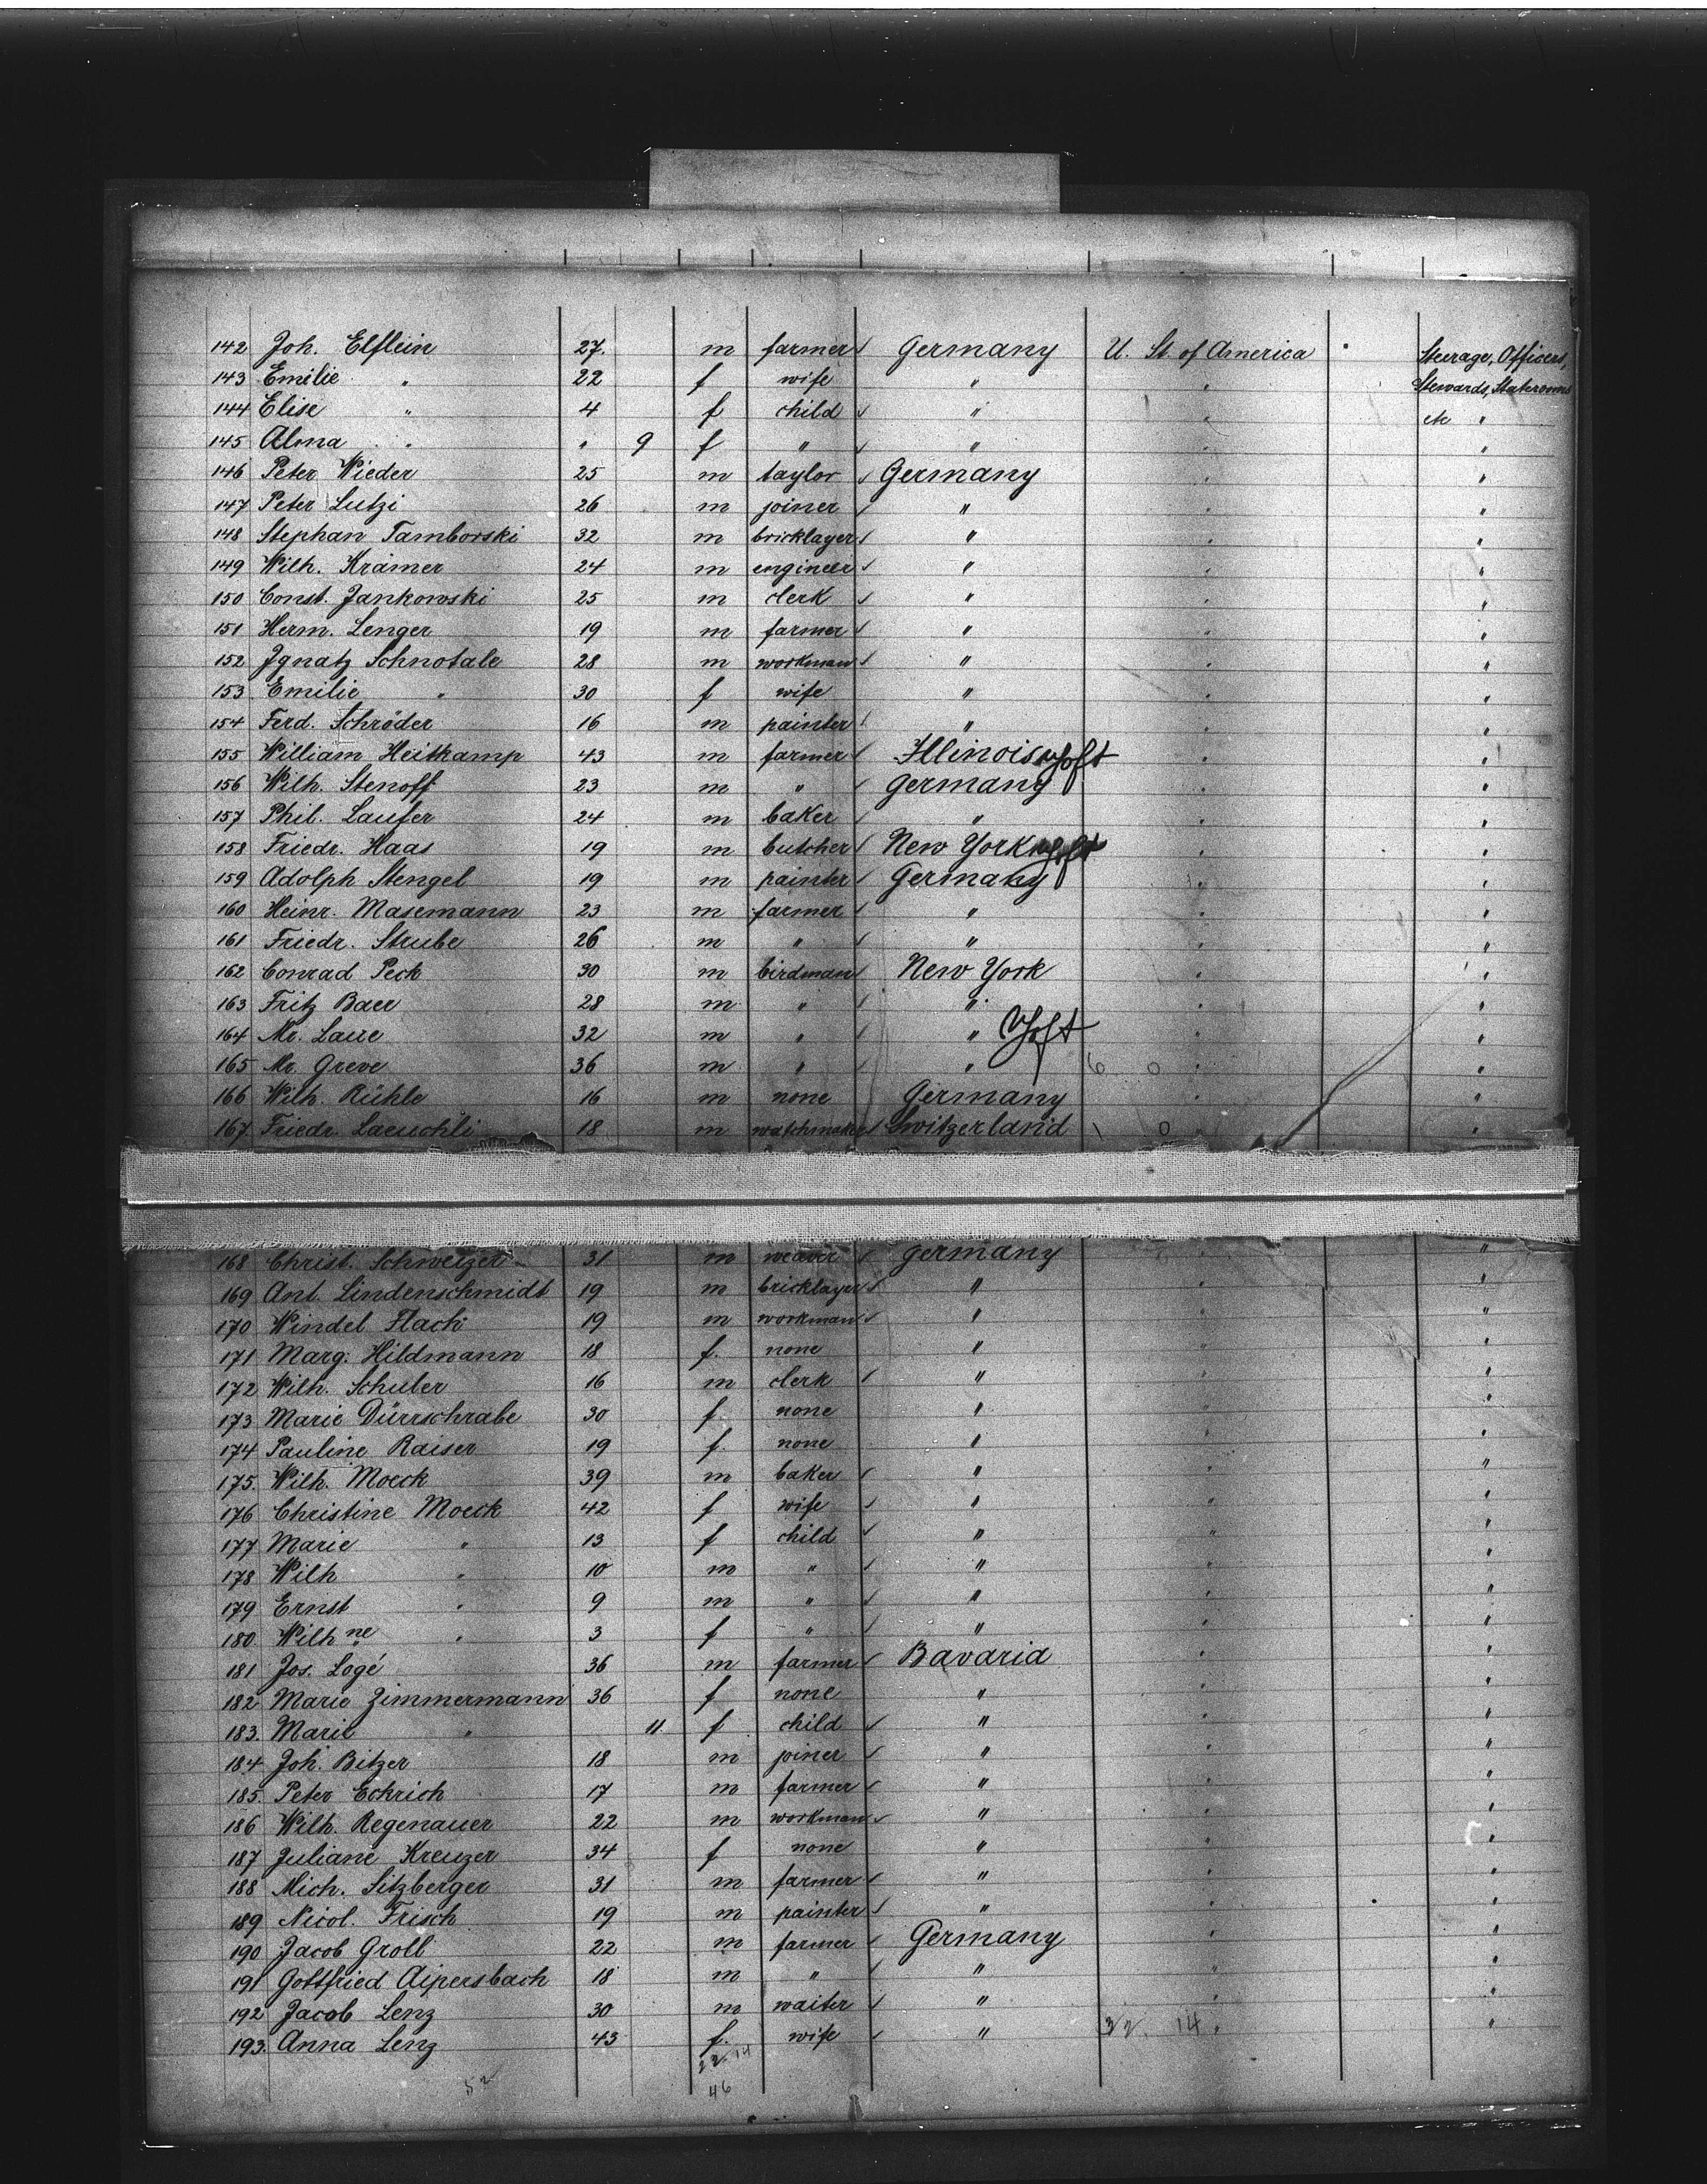 142 Joh. Elflein 27. m farmer Germany U. St. of America Steerage, Officers,
143 Emilie " 22 f wife " " Stewards, Staterooms
144 Elise " 4 f child " " etc "
145 Alma " " 9 f " " " "
146 Peter Wieder 25 m taylor Germany " "
147 Peter Lutzi 26 m joiner " " "
148 Stephan Tamborski 32 m bricklayer " " "
149 Wilh. Krämer 24 m engineer " " "
150 Const. Jankowski 25 m clerk " " "
151 Herm. Lenger 19 m farmer " " "
152 Ignatz Schnotale 28 m workman " " "
153 Emilie " 30 f wife " " "
154 Ferd. Schröder 16 m painter " " "
155 William Heitkamp 43 m farmer Illinois " "
156 Wilh. Stenoff 23 m " Germany " "
157 Phil. Laufer 24 m baker " " "
158 Friedr. Haas 19 m butcher New York " "
159 Adolph Stengel 19 m painter Germany " "
160 Heinr. Masemann 23 m farmer " " "
161 Friedr. Strube 26 m " " " "
162 Conrad Peck 30 m birdman New York " "
163 Fritz Baer 28 m " " " "
164 Mr. Laue 32 m " " " "
165 Mr. Greve 36 m " " 6 0 " "
166 Wilh. Rühle 16 m none Germany " "
167 Friedr. Laeuchli 18 m watchmaker Switzerland 1 0 " "
168 Christ. Schweizer 31 m weaver Germany " "
169 Ant. Lindenschmidt 19 m bricklayer " " "
170 Windel Flach 19 m workman " " "
171 Marg. Hildmann 18 f. none " " "
172 Wilh. Schuler 16 m clerk " " "
173 Marie Dürrschrabe 30 f none " " "
174 Pauline Raiser 19 f none " " "
175. Wilh. Moeck 39 m baker " " "
176 Christine Moeck 42 f wife " " "
177 Marie " 13 f child " " "
178 Wilh " 10 m " " " "
179 Ernst " 9 m " " " "
180. Wilhne " 3 f " " " "
181 Jos. Logé 36 m farmer Bavaria " "
182 Marie Zimmermann 36 f none " " "
183. Marie " 11. f child " " "
184 Joh. Bitzer 18 m joiner " " "
185. Peter Eckrich 17 m farmer " " "
186 Wilh. Regenauer 22 m workman " " "
187 Juliane Kreuzer 34 f none " " "
188 Mich. Sitzberger 31 m farmer " " "
189 Nicol. Frisch 19 m painter " " "
190 Jacob Groll 22 m farmer Germany " "
191 Gottfried Aipersbach 18 m " " " "
192 Jacob Lenz 30 m waiter " " "
193. Anna Lenz 43 f. wife " 32. 14 " "
22. 14
52 46